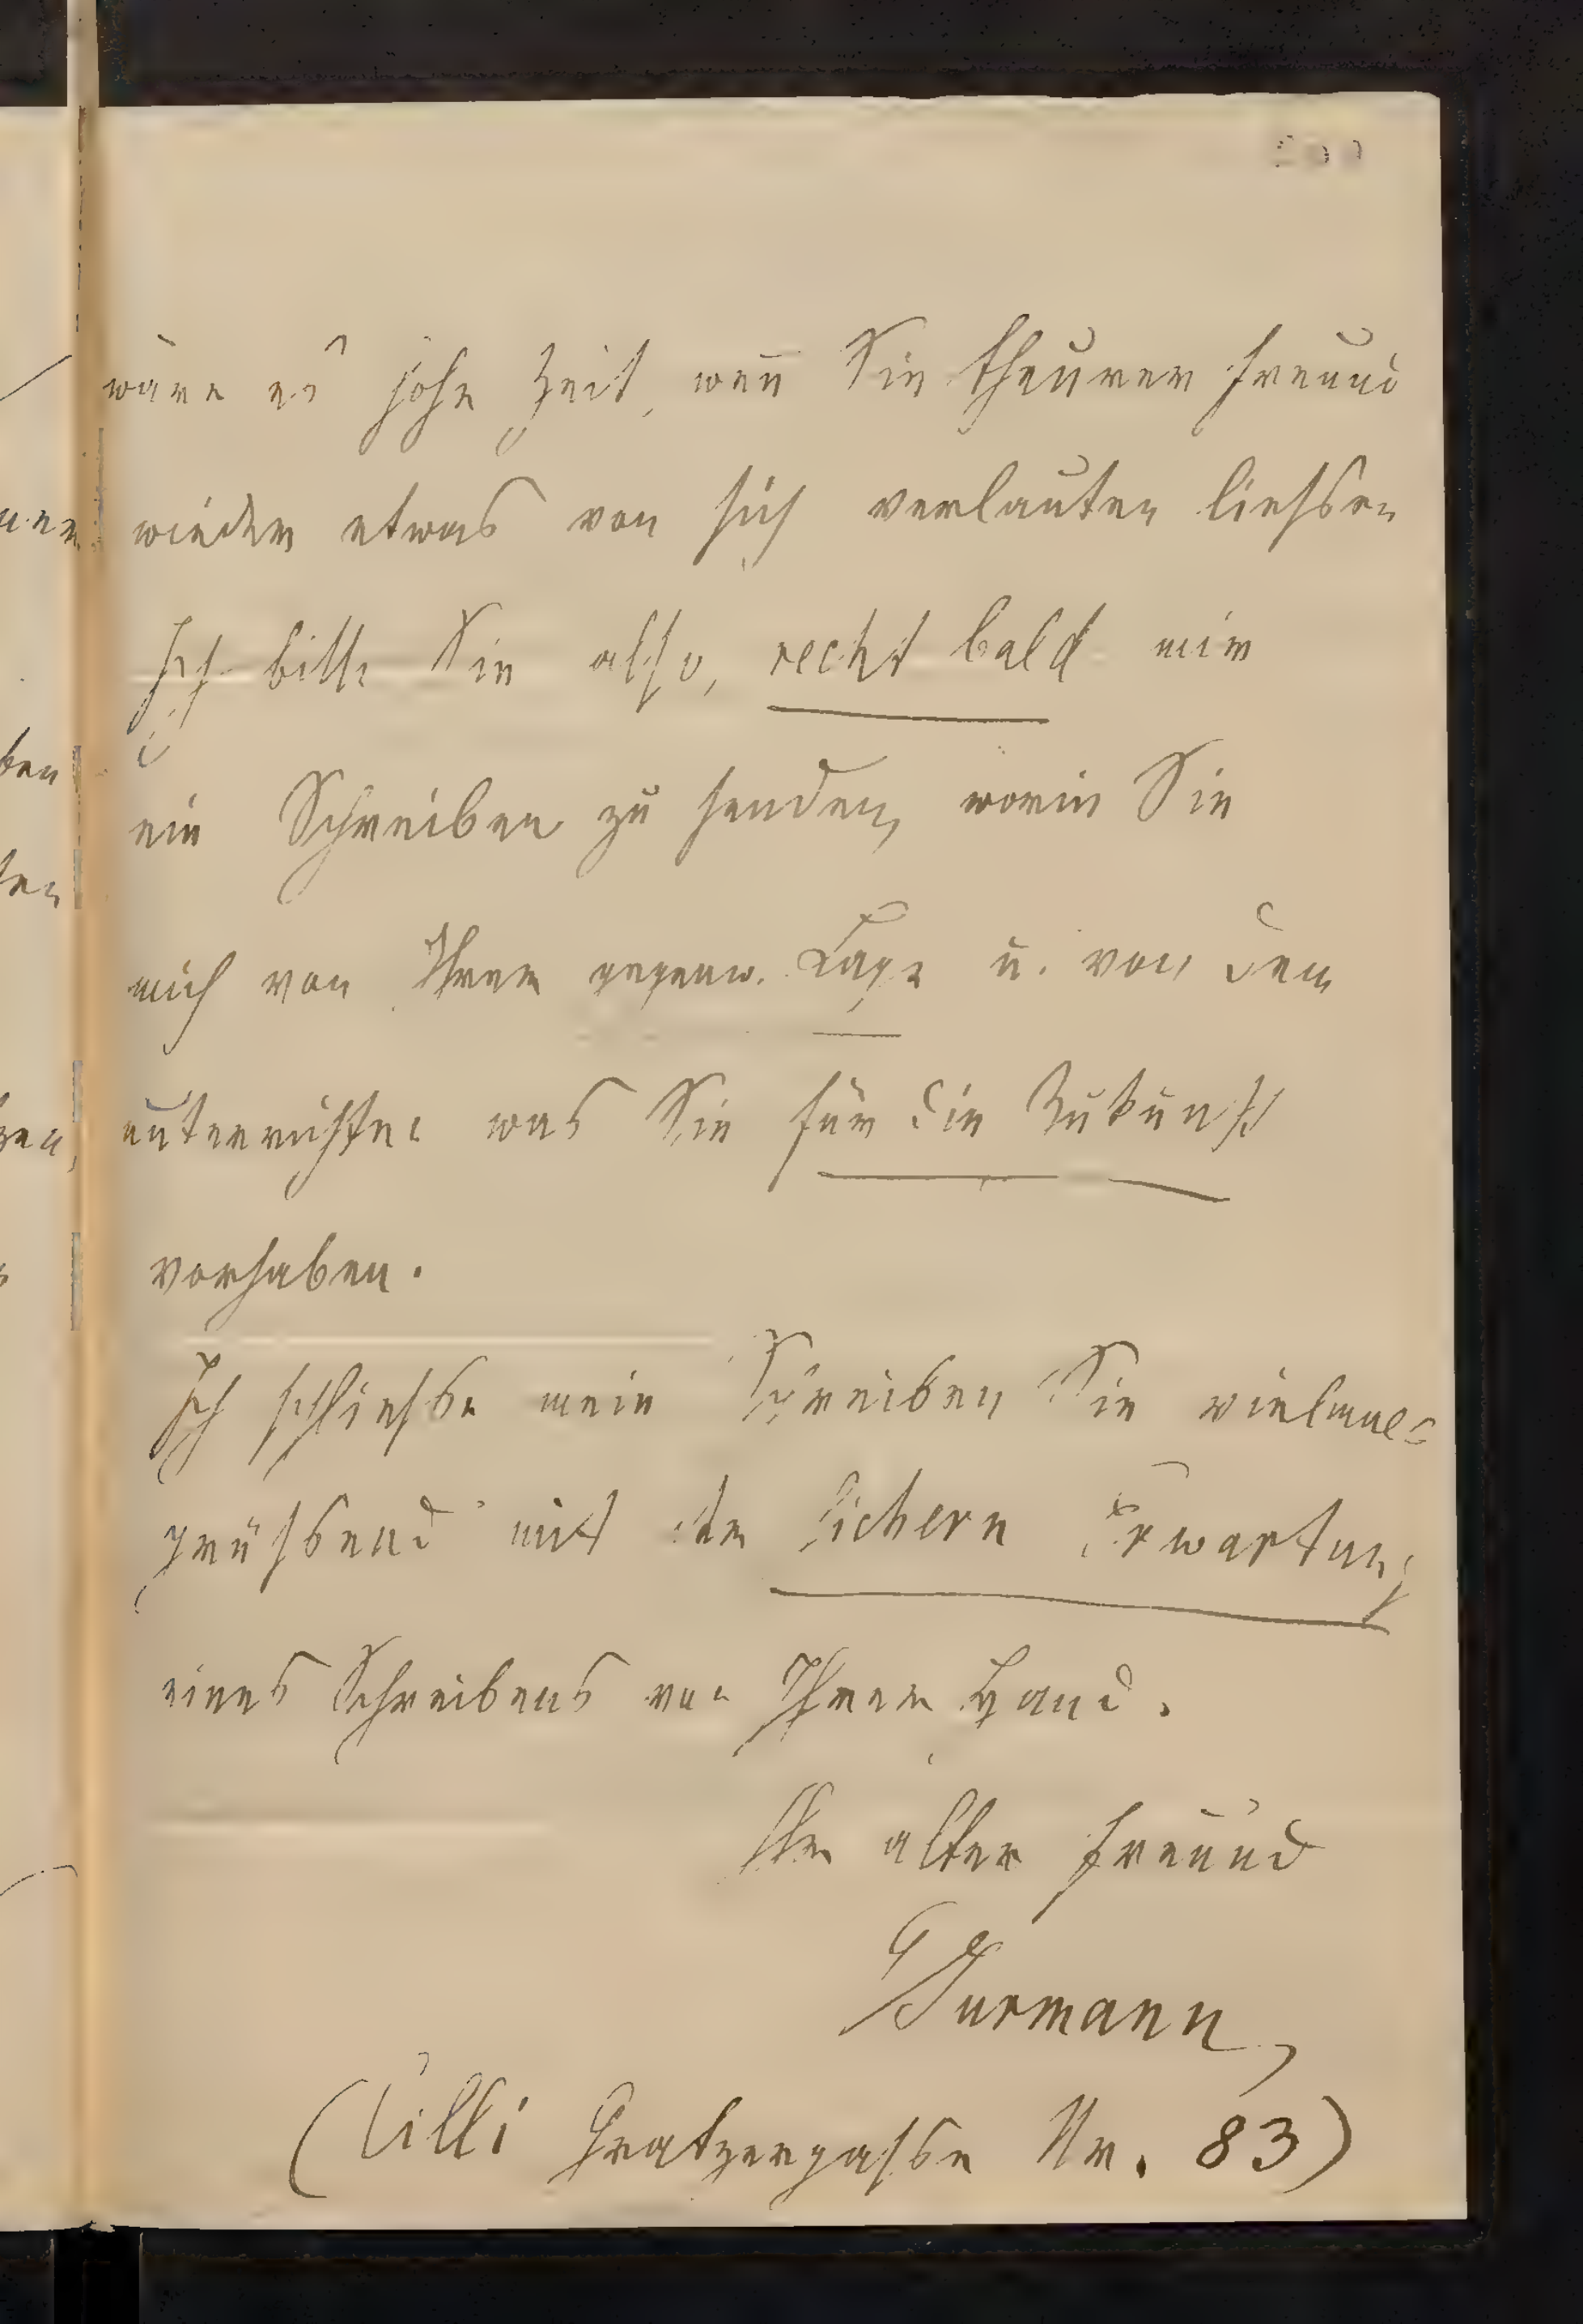 wäre es hohe Zeit, wen̄ Sie theurer Freund
wieder etwas von sich verlauten liessen
Ich bitte Sie also, recht bald mir
ein Schreiben zu senden, worin Sie
mich von Ihrer gegenw. Lage u. von dem
unterrichten was Sie für die Zukunft
vorhaben.
Ich schliesse mein Schreiben Sie vielmals
grüssend mit der sichern Erwartung
eines Schreibens von Ihrer Hand.
Ihr alter Freund
Gurmann,
(Cilli Gratzergasse Nr. 83)